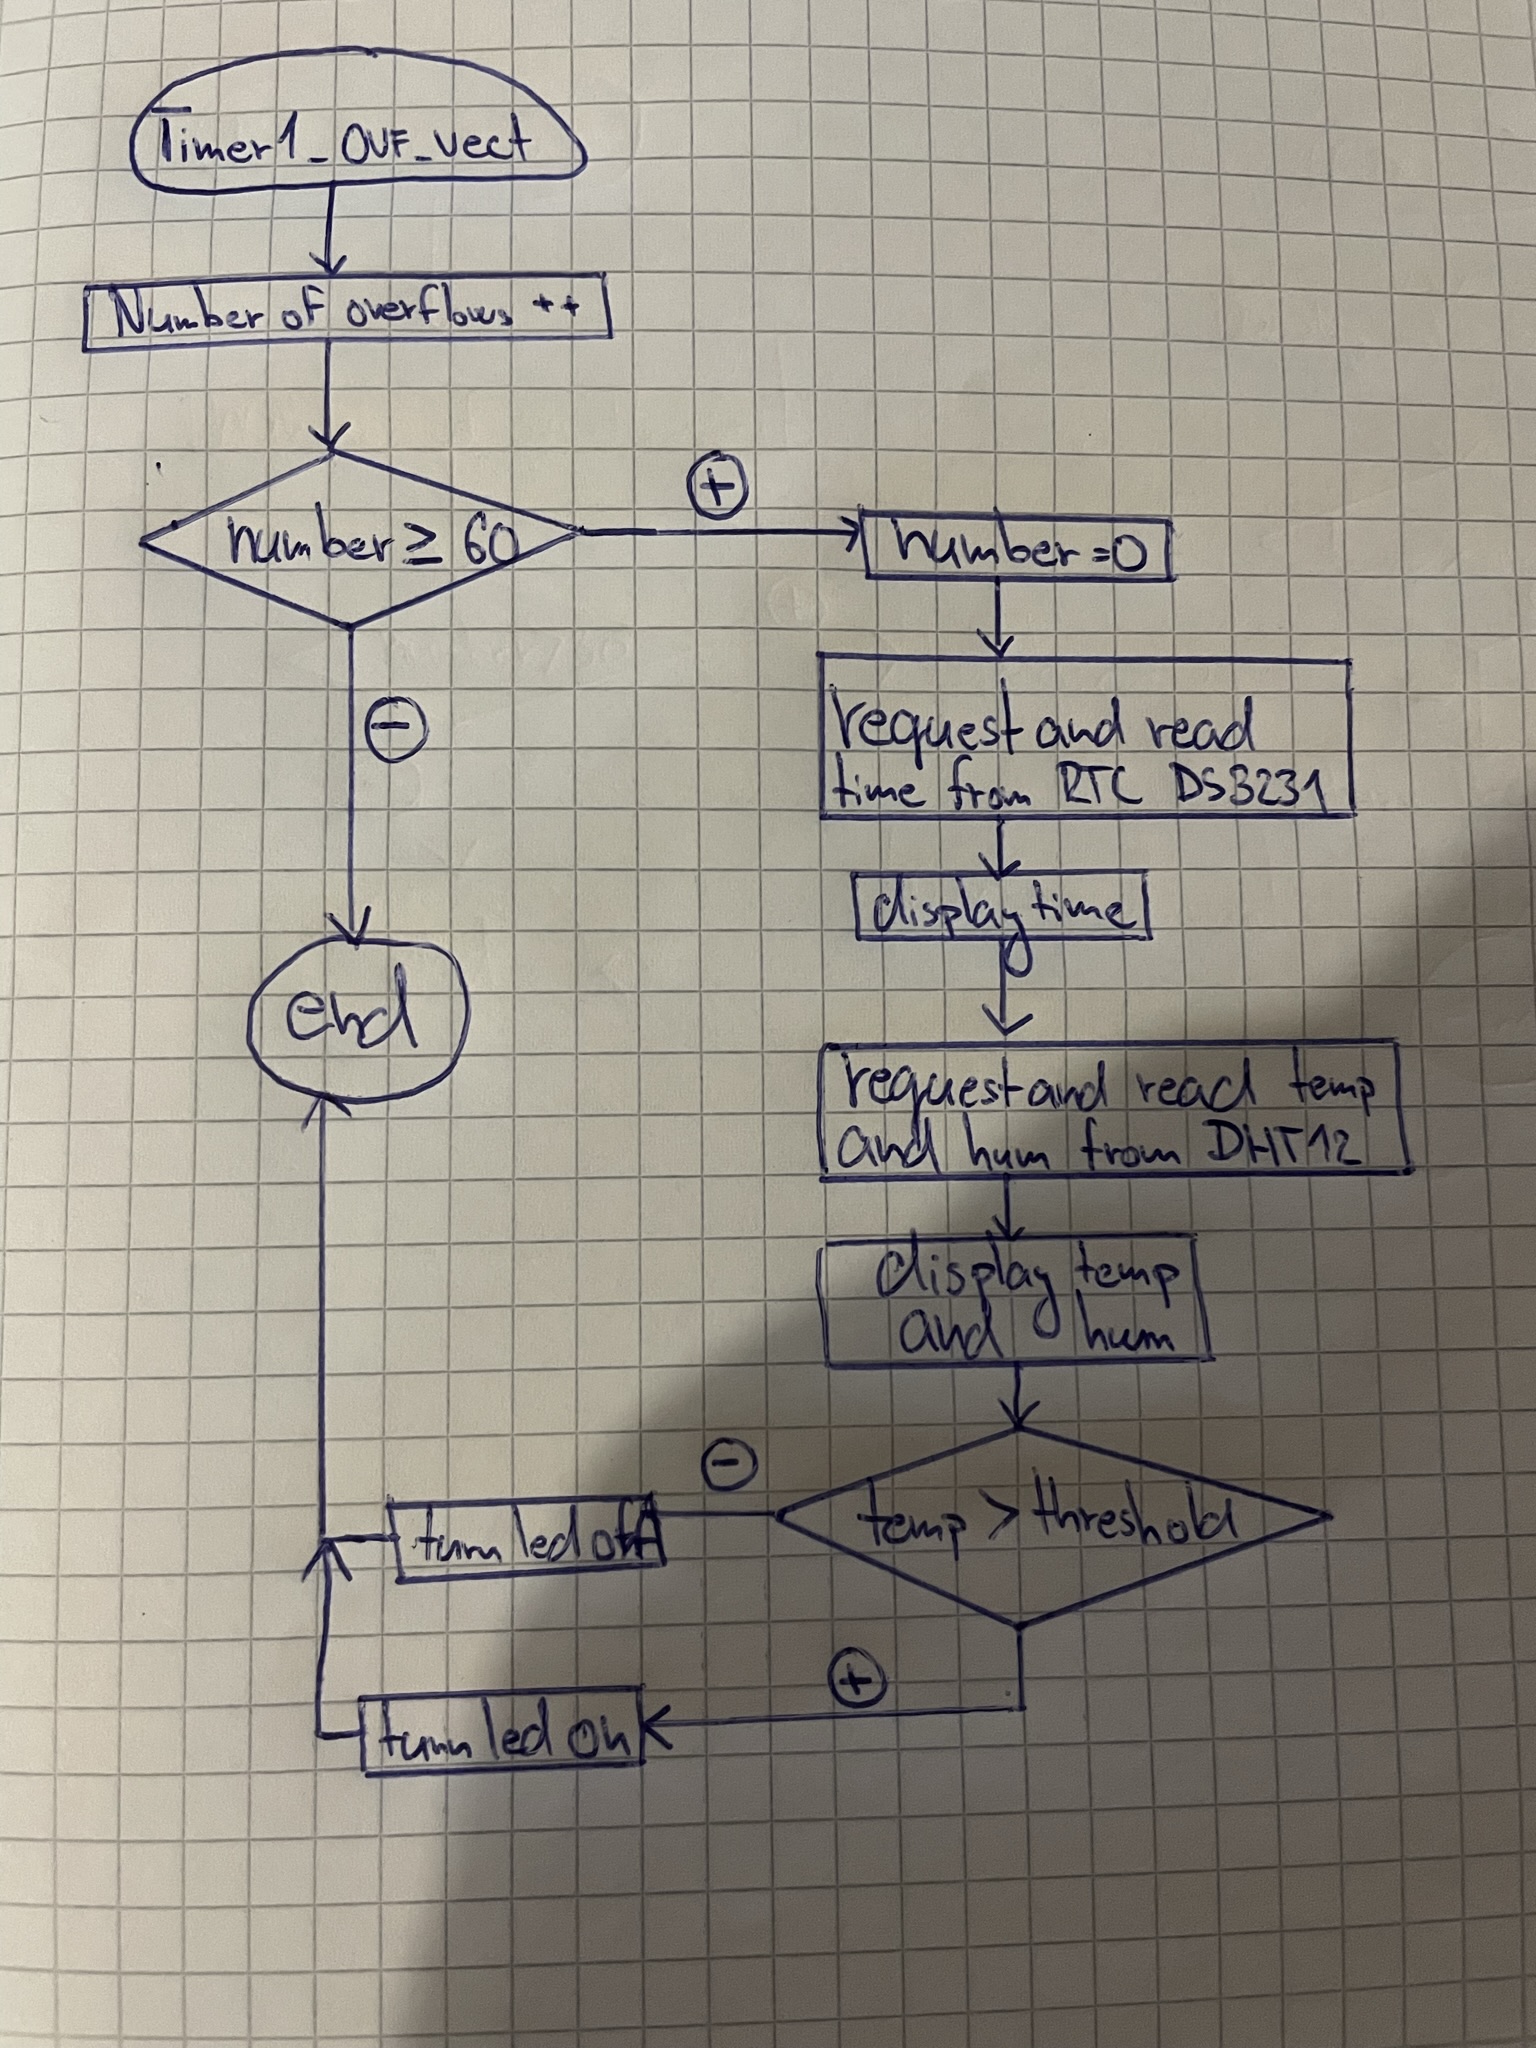 Timer1_OVF_vect
Number of overflows ++
number ≥ 60
+
number=0
-
request and read
time from RTC DS3231
display time
end
request and read temp
and hum from DHT12
display temp
and hum
temp > threshold
-
turn led off
+
turn led on